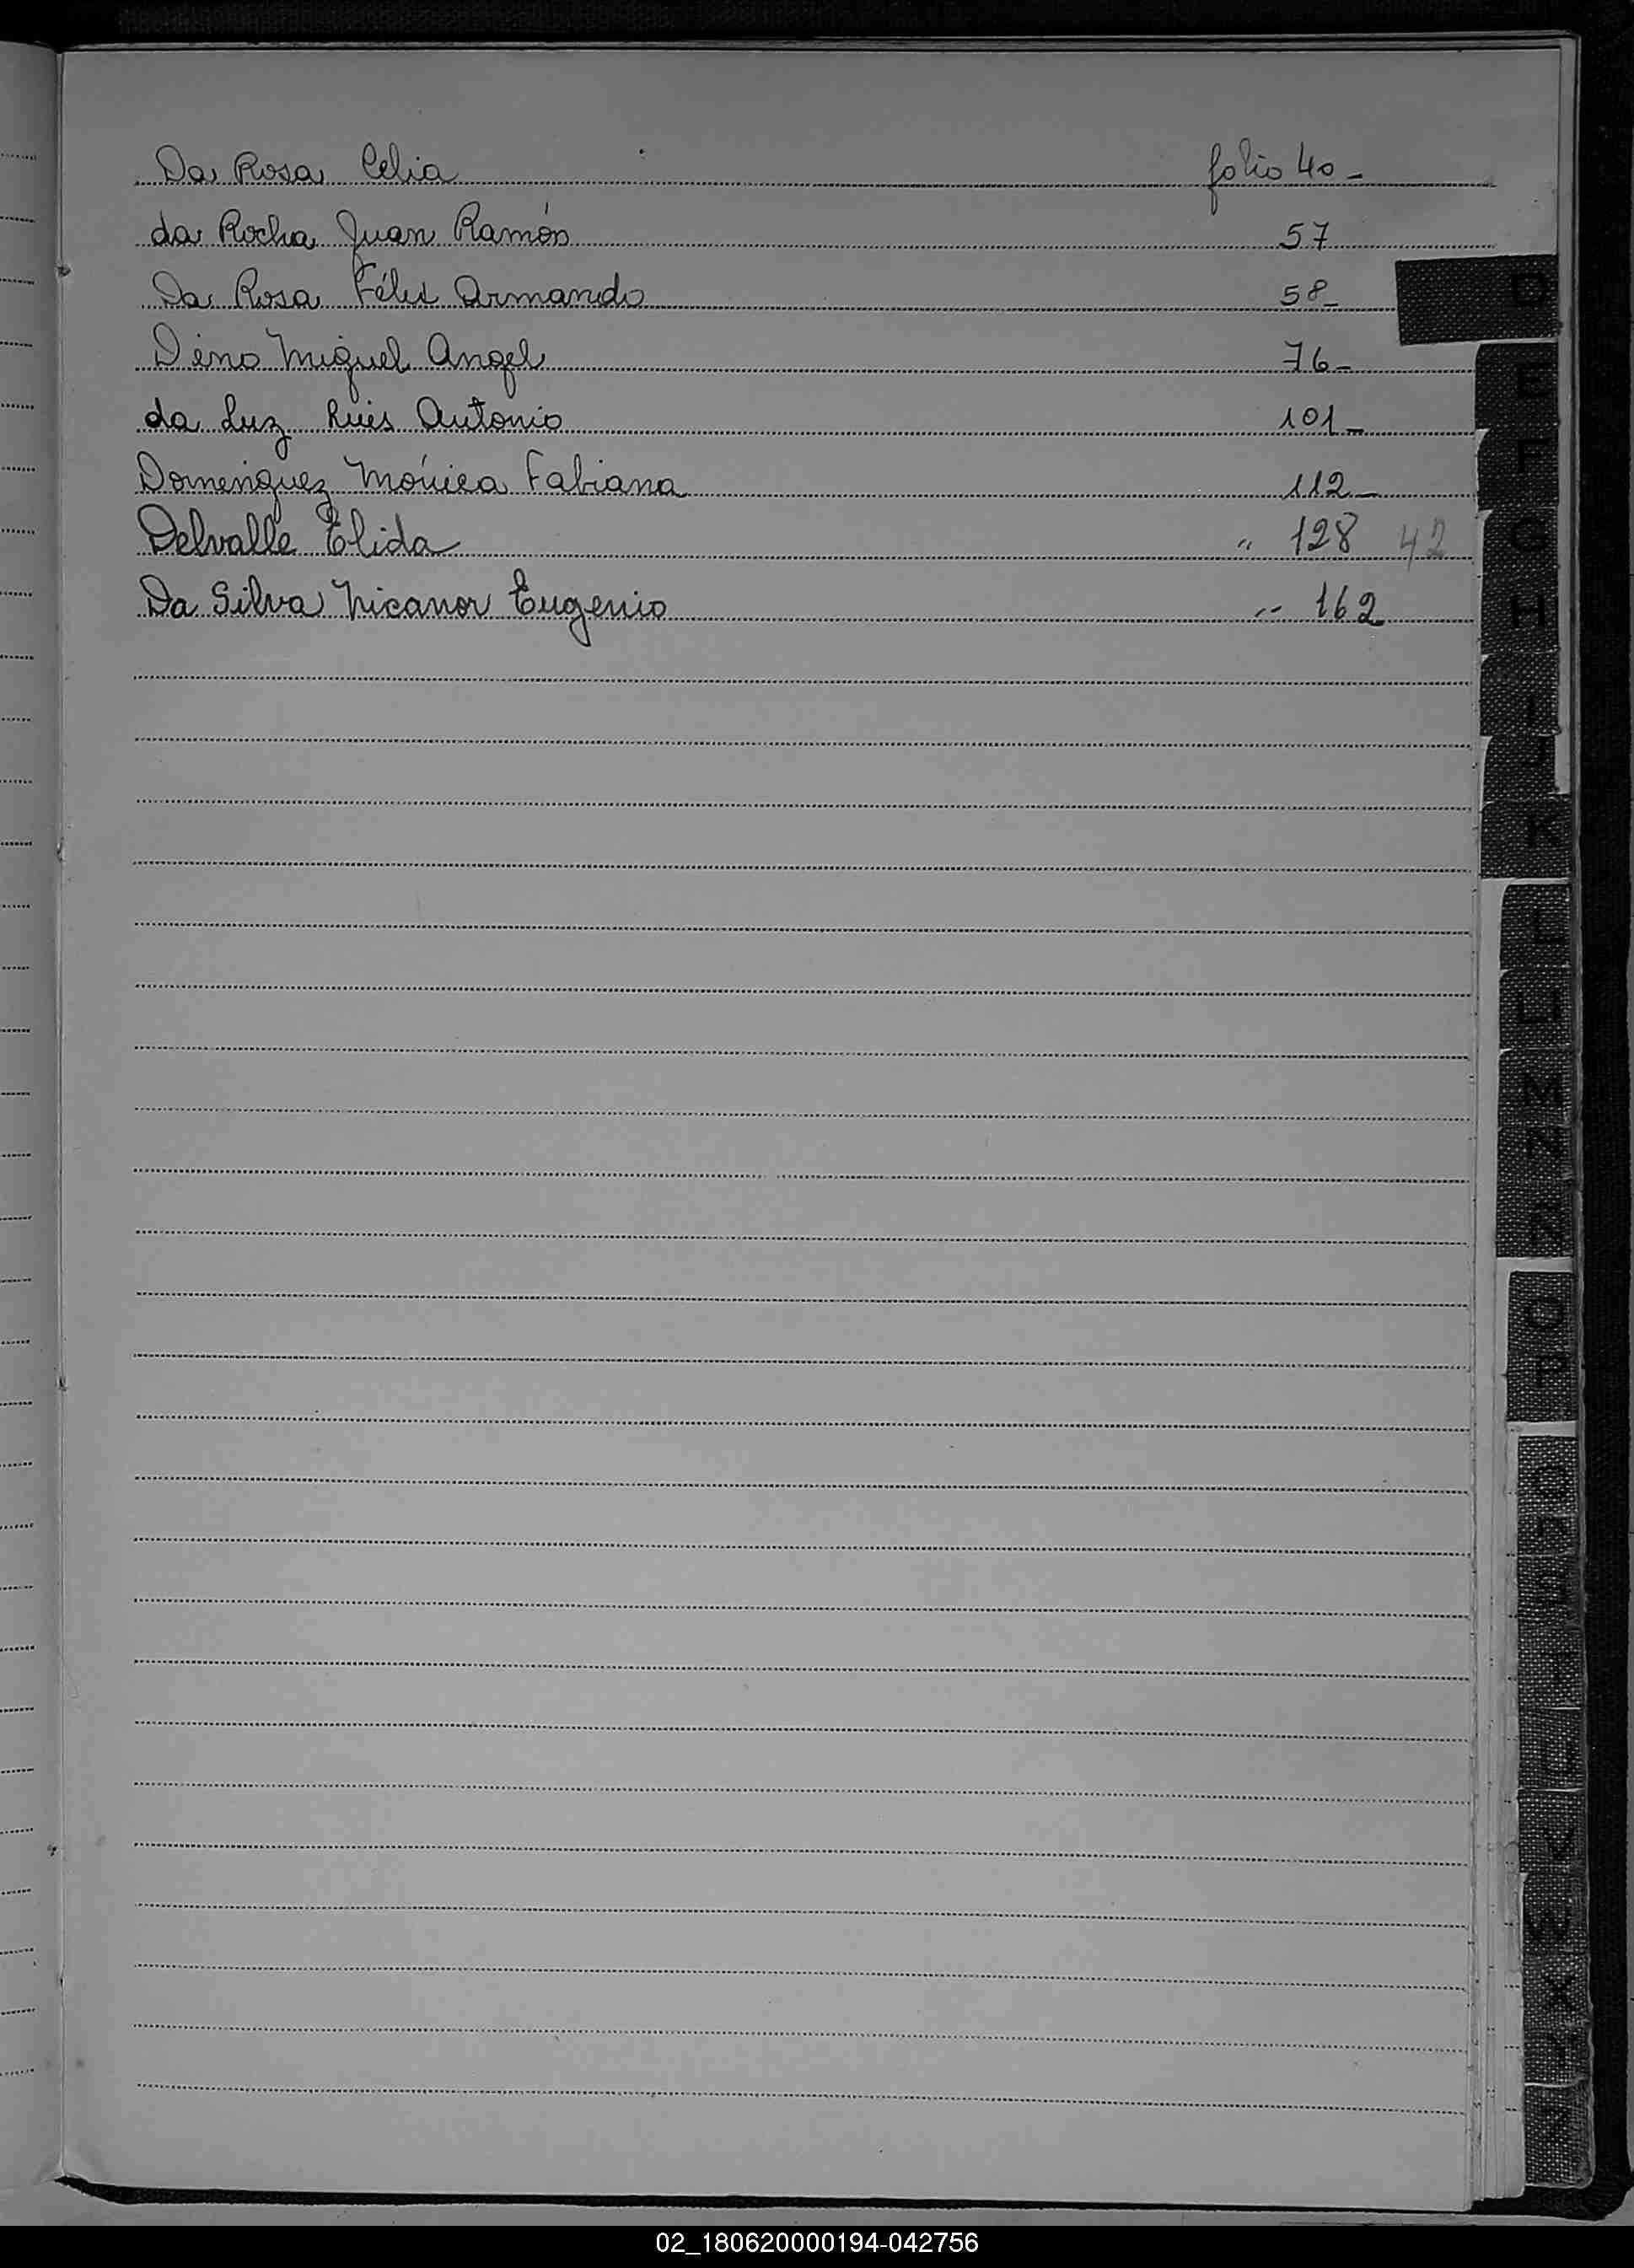 Da Rosa Celia folio 40-
da Rocha Juan Ramón 57
Da Rosa Félix Armando 58-
Deno Miguel Angel 76-
da Luz Luis Antonio 101-
Domenguez Mónica Fabiana 112-
Delvalle Elida " 128 42
Da Silva Nicanor Eugenio -- 162
D
E
F
G
H
I
J
K
L
LL
M
N
Ñ
O
P
Q
R
S
T
U
V
W
X
Y
Z
02_180620000194-042756